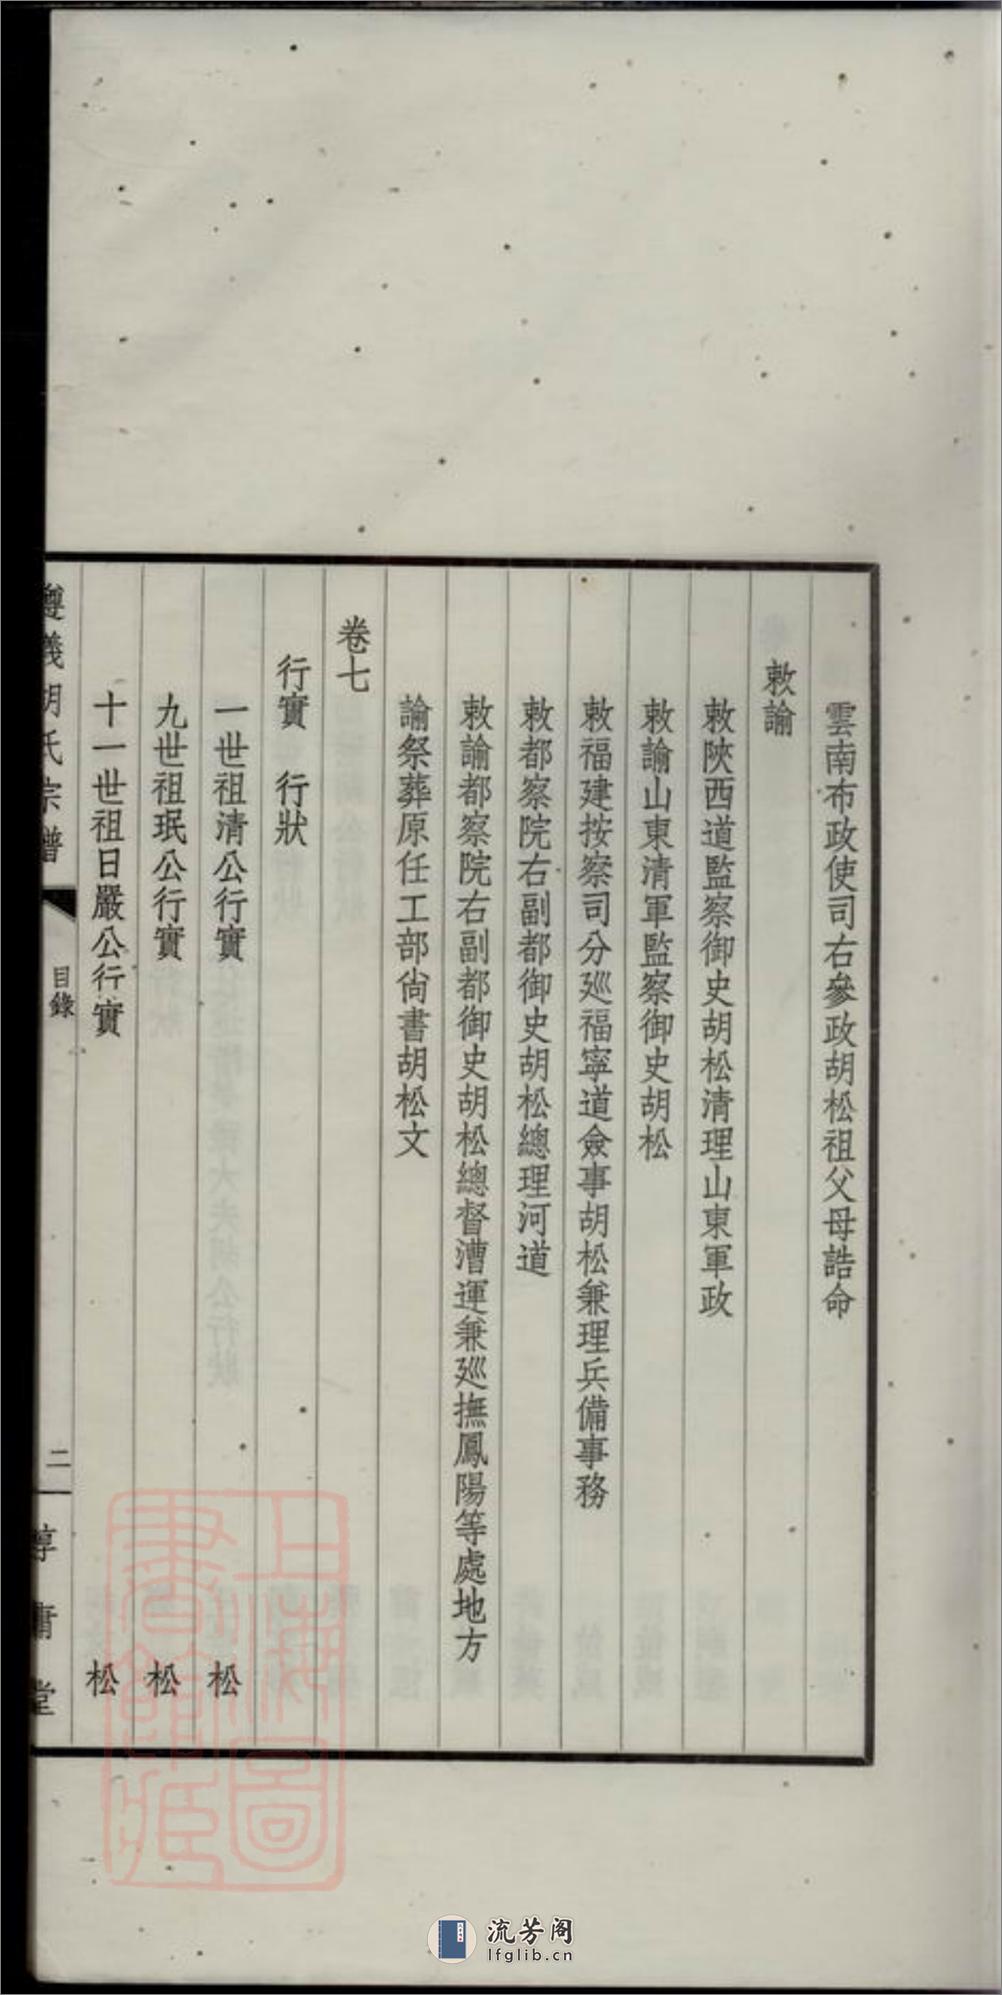 雲南布政使司右參政胡松祖父母誥命
敕諭
敕陝西道監察御史胡松清理山東軍政
敕諭山東清軍監察御史胡松
敕福建按察司分廵福寧道僉事胡松兼理兵備事務
敕都察院右副都御史胡松總理河道
敕諭都察院右副都御史胡松總督漕運兼廵撫鳳陽等處地方
諭祭葬原任工部尙書胡松文
卷七
行實　行狀
一世祖清公行實　松
九世祖珉公行實　松
十一世祖日嚴公行實　松
遵義胡氏宗譜　目錄　二　惇庸堂
上海圖書館藏
流芳阁
lfglib.cn